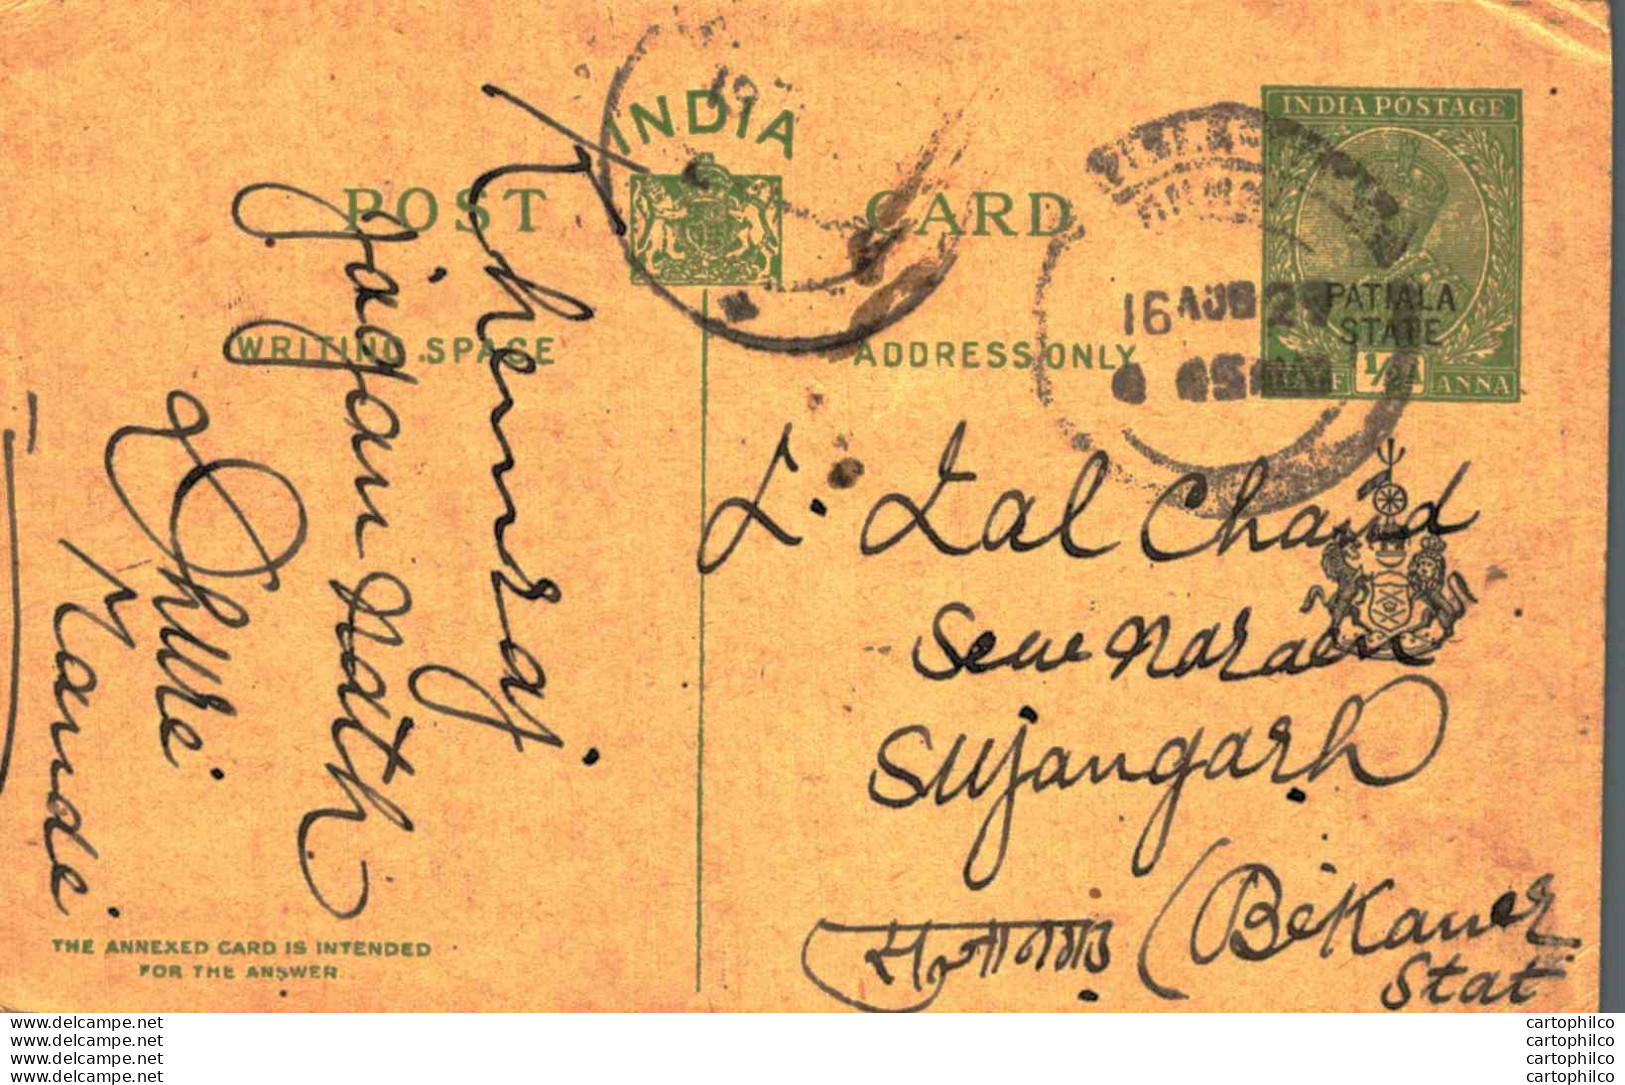 INDIA
POST CARD
WRITING SPACE
ADDRESS ONLY
INDIA POSTAGE
PATIALA
STATE
HALF ½ A ANNA
16 AUG 2
Khemraj
Jagan Nath
Dhuri
Mandi
L. Lal Chand
Sew Naraen
Sujangarh
(Bikaner
Stat
सुजानगढ
THE ANNEXED CARD IS INTENDED
FOR THE ANSWER
www.delcampe.net
www.delcampe.net
www.delcampe.net
www.delcampe.net
cartophilco
cartophilco
cartophilco
cartophilco